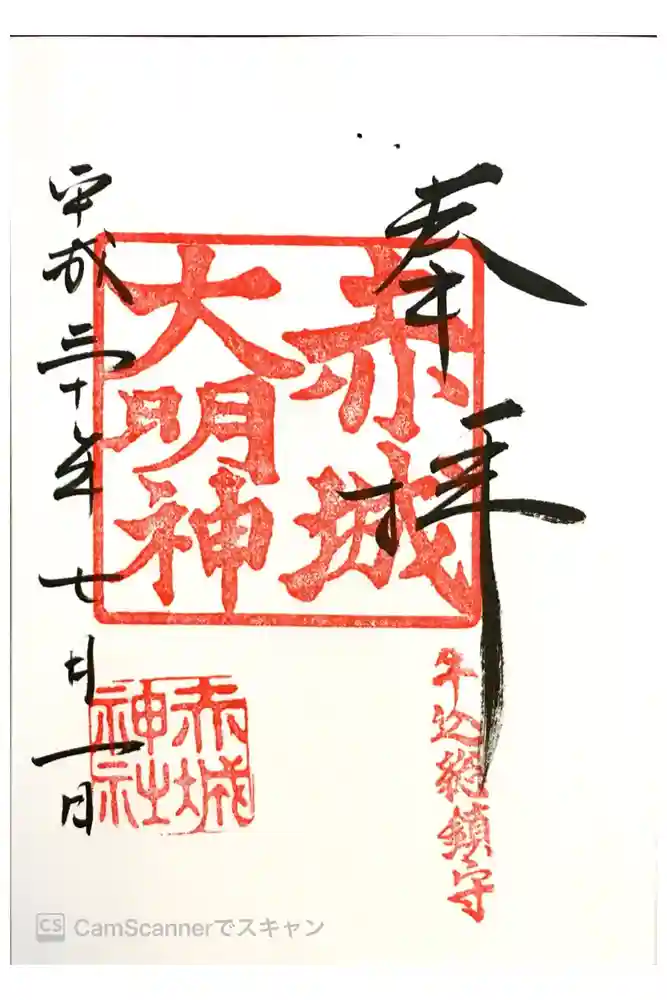 奉拝
赤城
大明神
牛込総鎮守
平成三十年七月一日
赤城
神社
CS CamScannerでスキャン